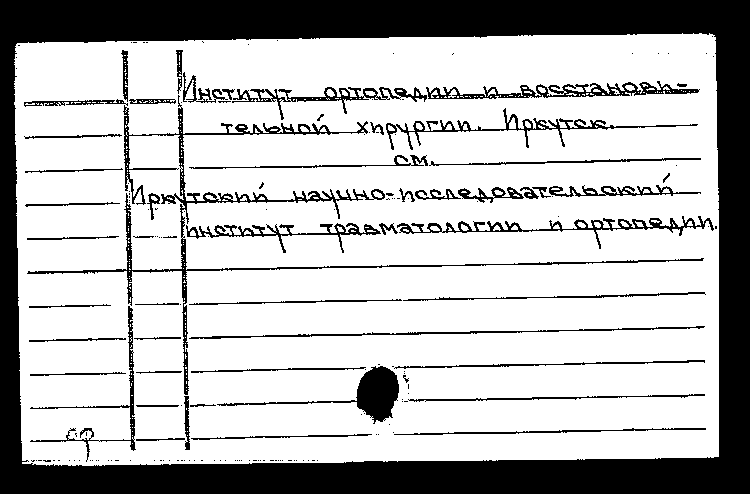 Институт ортопедии и восстанови-
тельной хирургии. Иркутск.
см.
Иркутский научно-исследовательский
институт травматологии и ортопедии.
ср